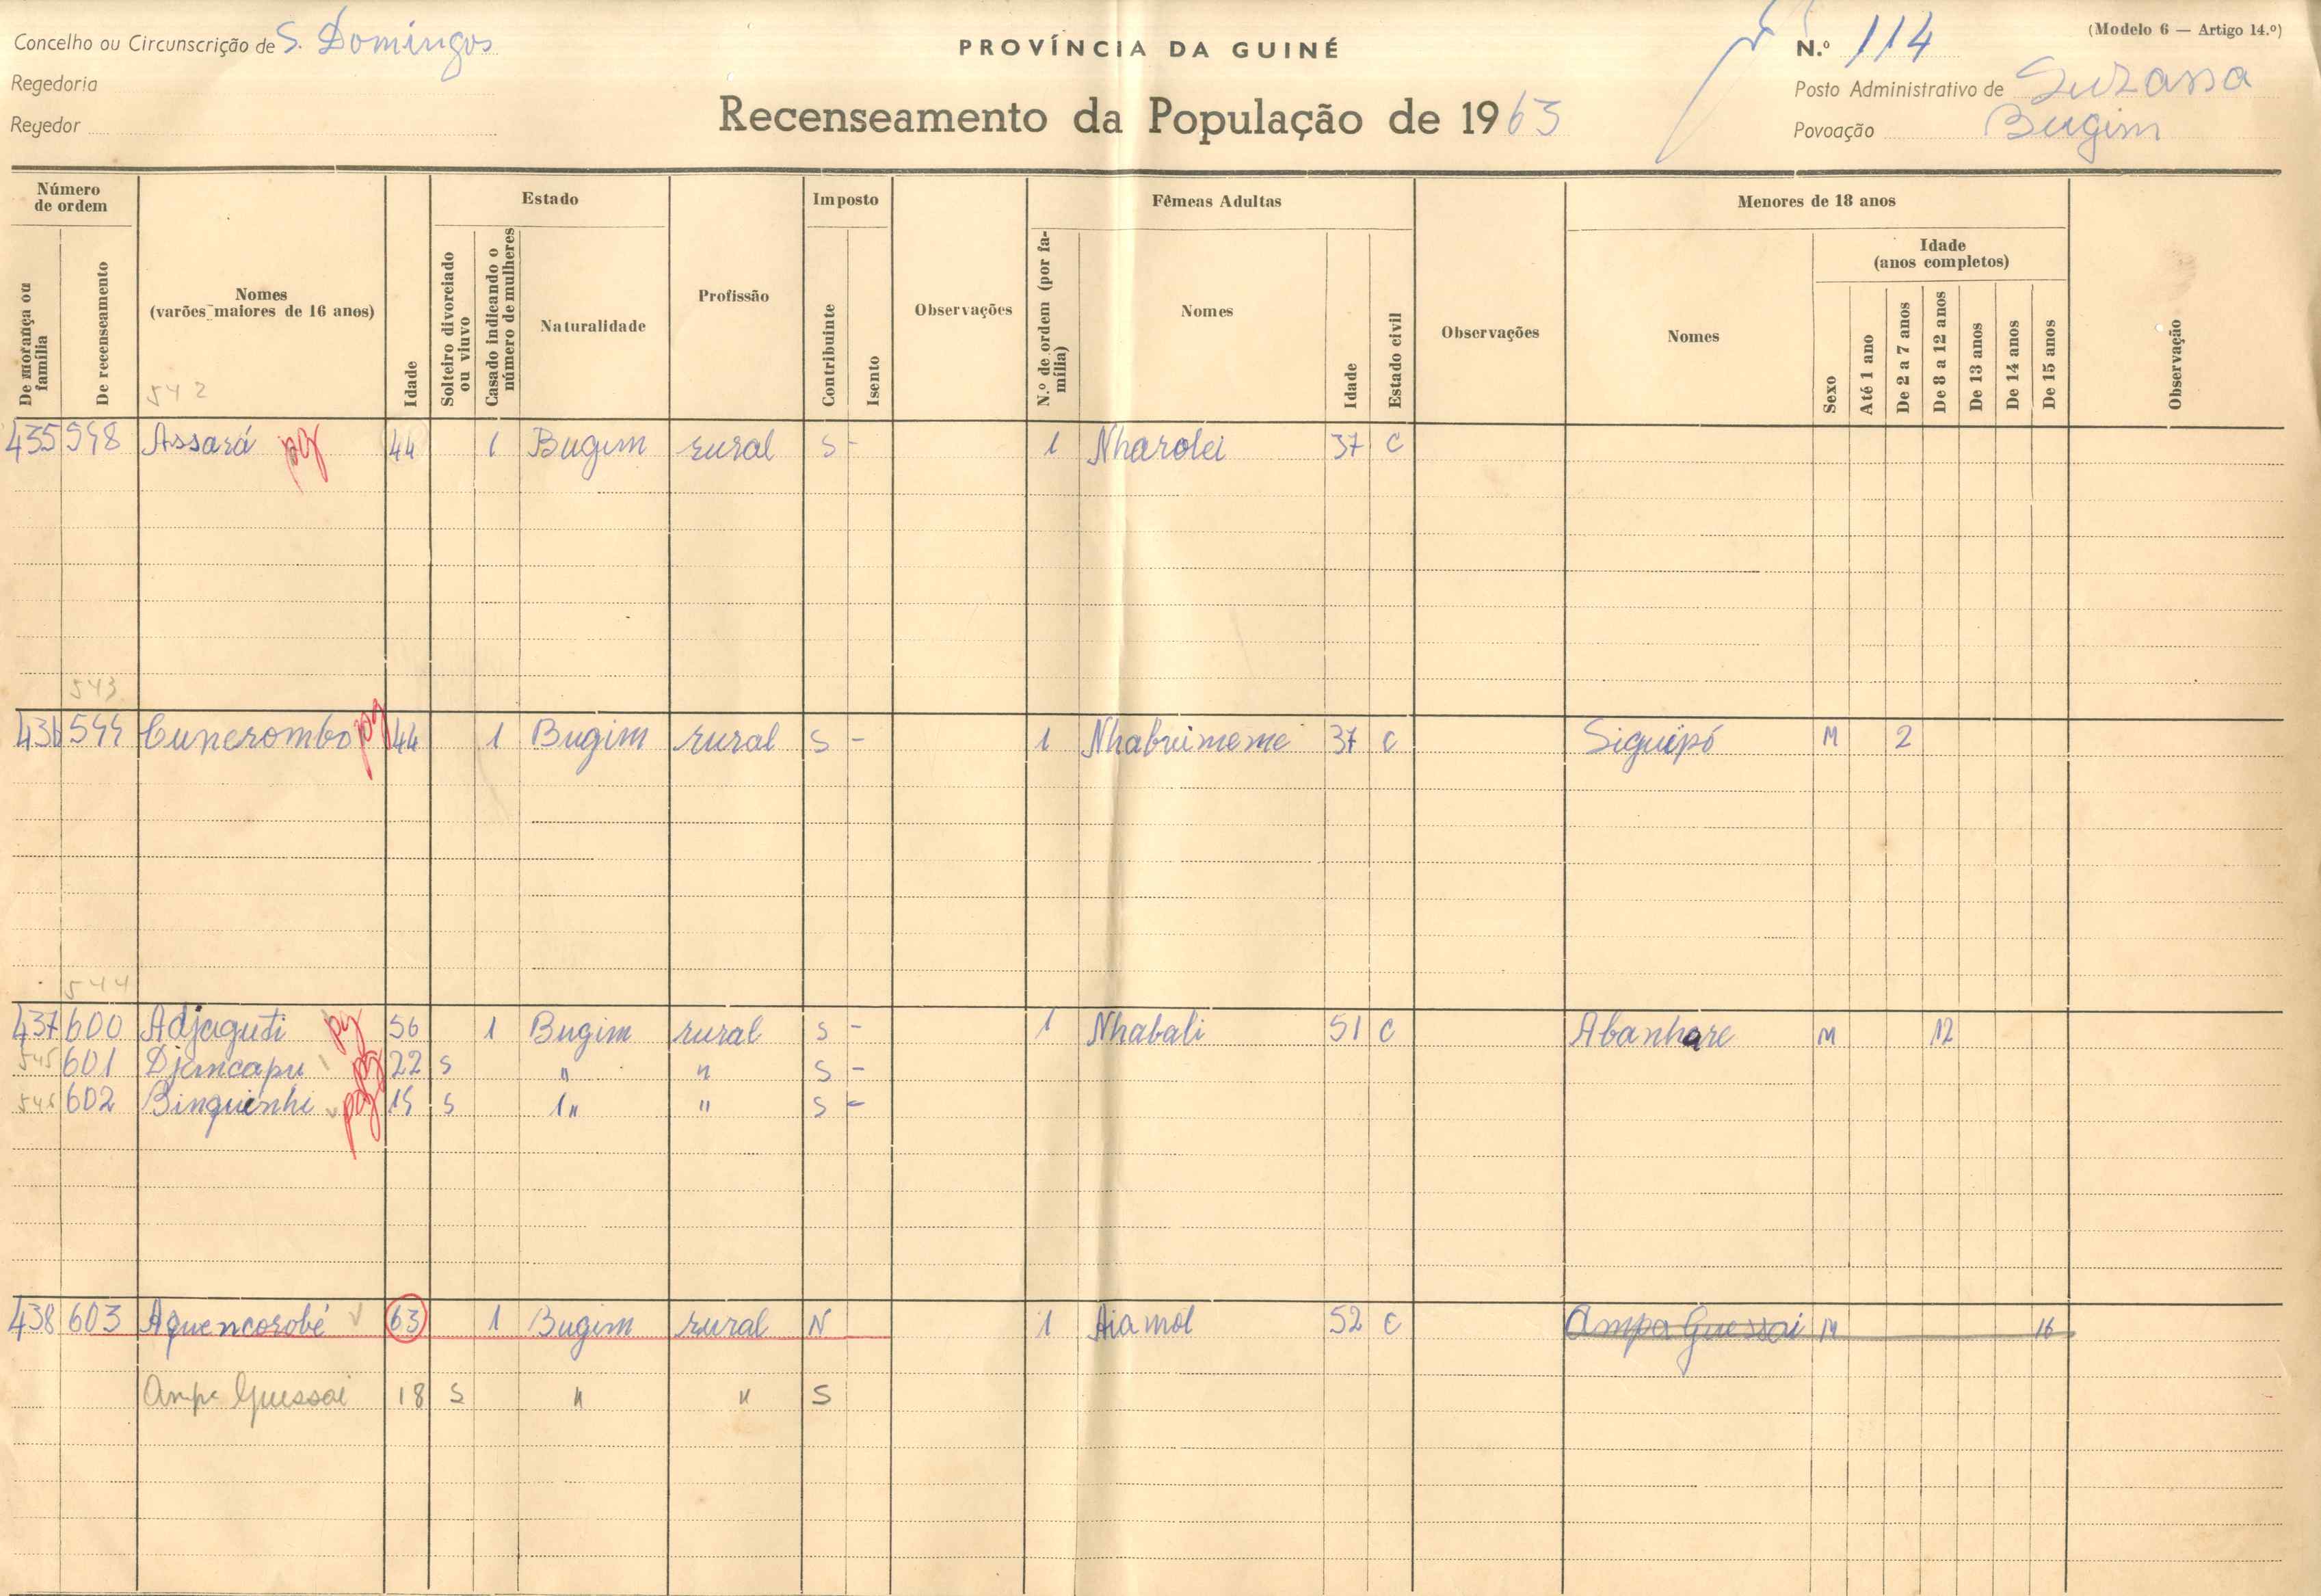 Concelho ou Circunscrição de S. Domingos
Regedoria
Regedor
PROVÍNCIA DA GUINÉ
Recenseamento da População de 1963
(Modelo 6 — Artigo 14.º)
N.º 114
Posto Administrativo de Suzana
Povoação Bugim
Número de ordem
De morança ou família
De recenseamento
Nomes (varões maiores de 16 anos)
Idade
Estado
Solteiro divorciado ou viuvo
Casado indicando o número de mulheres
Naturalidade
Profissão
Imposto
Contribuinte
Isento
Observações
Fêmeas Adultas
N.º de ordem (por família)
Nomes
Idade
Estado civil
Observações
Menores de 18 anos
Nomes
Sexo
Idade (anos completos)
Até 1 ano
De 2 a 7 anos
De 8 a 12 anos
De 13 anos
De 14 anos
De 15 anos
Observação
542
435 598 Assará pg 44 1 Bugim rural S - 1 Nharolei 37 C
543
436 599 Cunerombo pg 44 1 Bugim rural S - 1 Nhabuimeme 37 C Siguipó M 2
544
437 600 Adjaguti pg 56 1 Bugim rural S - 1 Nhabali 51 C Abanhare M 12
545 601 Djencapu pg 22 S " " S -
546 602 Binquinhi pg 19 S " " S -
438 603 Aquencorobé 63 1 Bugim rural N 1 Aiamol 52 C Ampa Guessai M 16
Ampa Guessai 18 S " " S